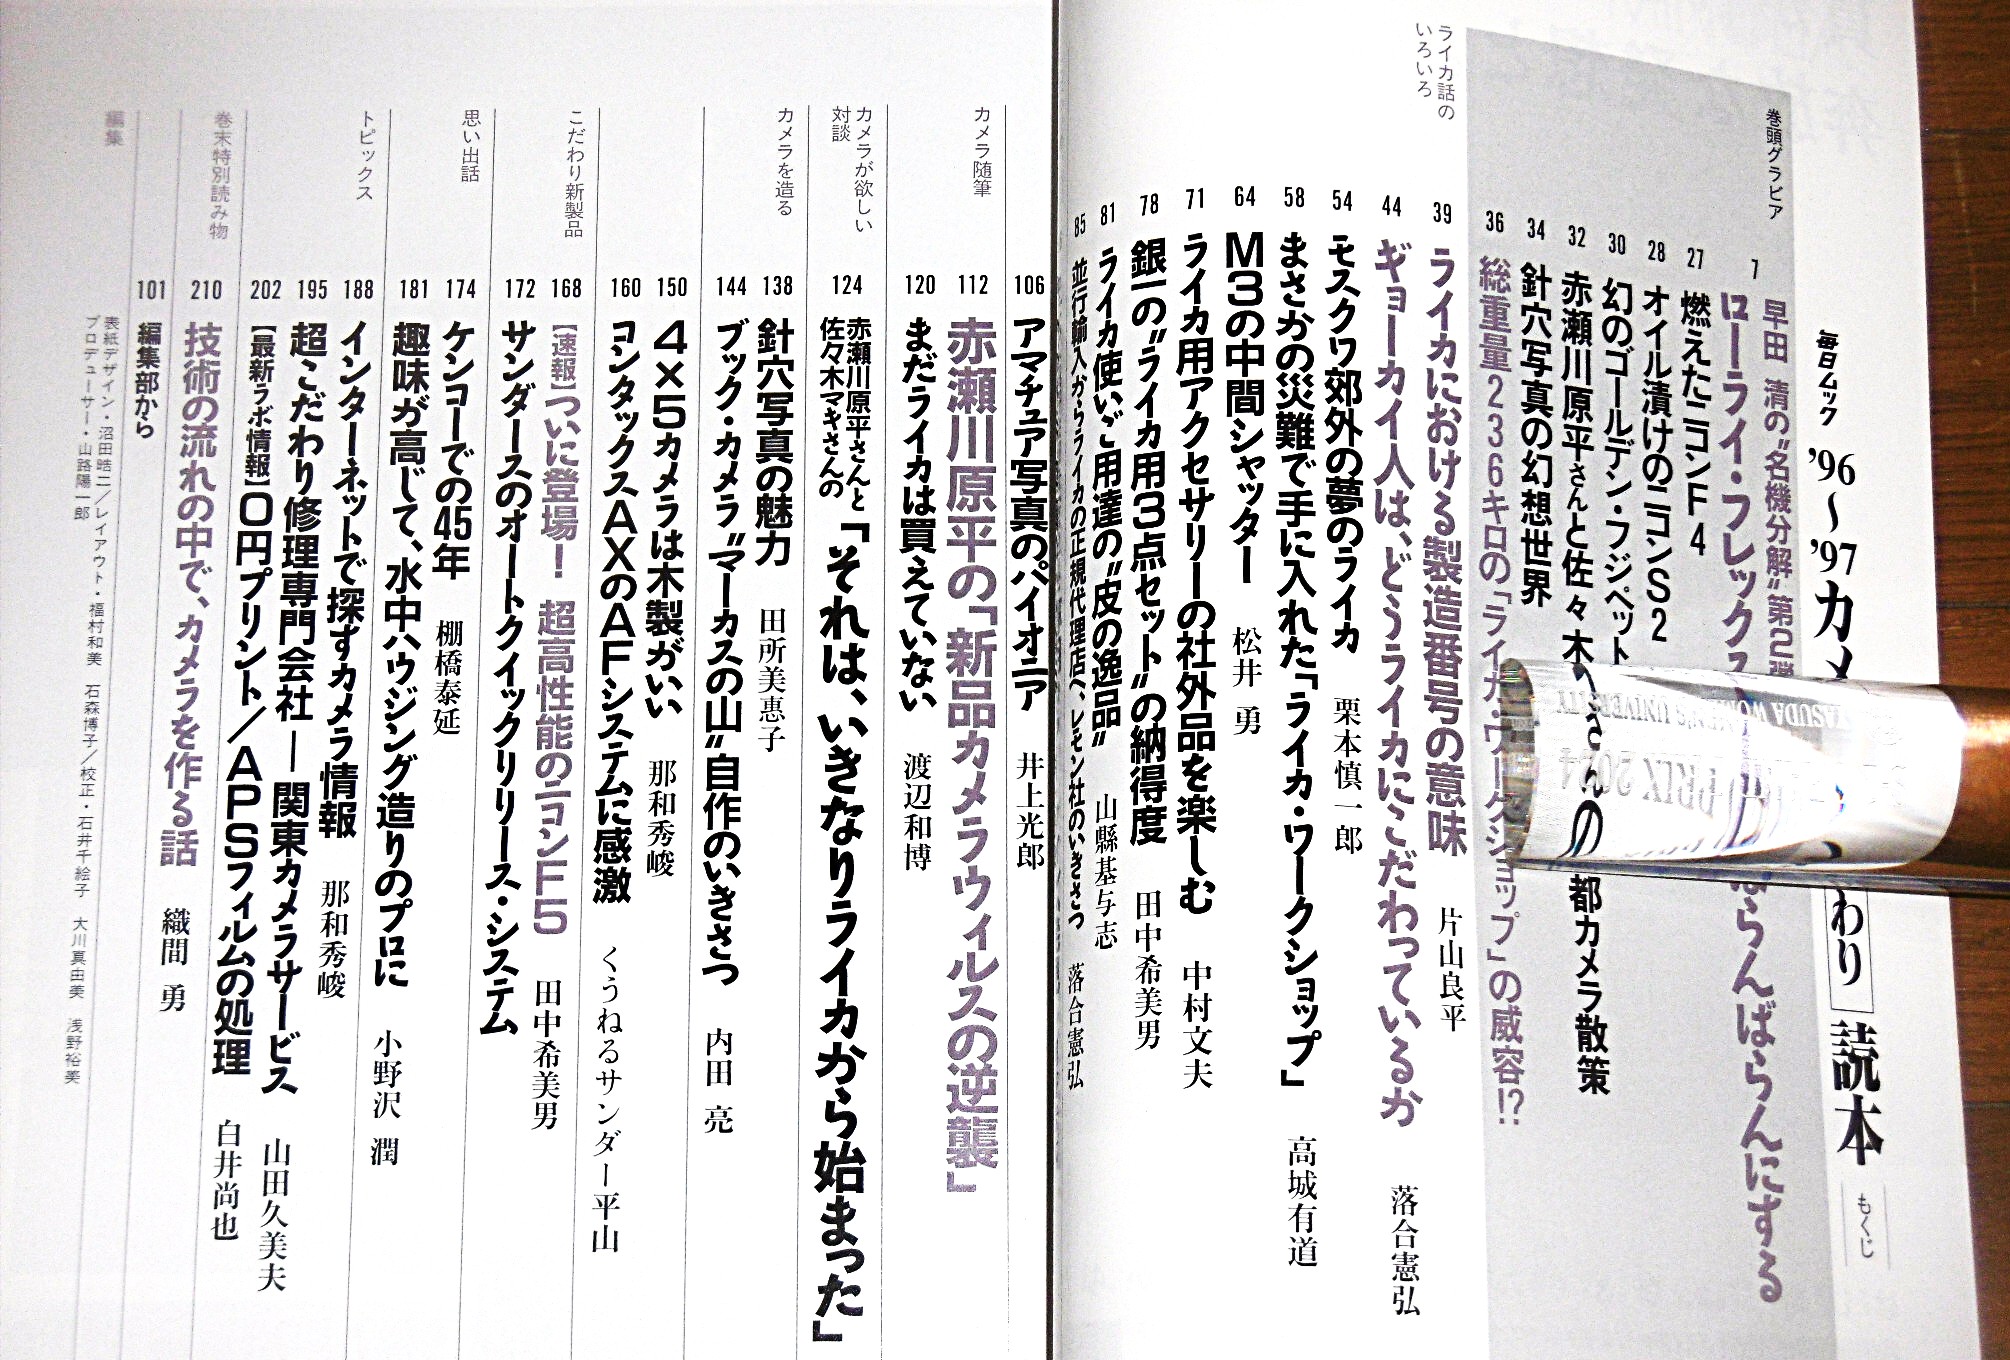 毎日ムック
'96〜'97カメ
わり
読本
もくじ
巻頭グラビア
7
早田 清の"名機分解"第2弾
ローライ・フレックス
ばらんばらんにする
27
燃えたニコンF4
28
オイル漬けのニコンS2
30
幻のゴールデン・フジペット
32
赤瀬川原平さんと佐々木
さんの
都カメラ散策
34
針穴写真の幻想世界
36
総重量236キロの「ライカ・ワークショップ」の威容!?
ライカ話の
いろいろ
39
ライカにおける製造番号の意味 片山良平
44
ギョーカイ人は、どうライカにこだわっているか 落合憲弘
54
モスクワ郊外の夢のライカ 栗本慎一郎
58
まさかの災難で手に入れた「ライカ・ワークショップ」 高城有道
64
M3の中間シャッター 松井 勇
71
ライカ用アクセサリーの社外品を楽しむ 中村文夫
78
銀一の"ライカ用3点セット"の納得度 田中希美男
81
ライカ使いご用達の"皮の逸品" 山縣基与志
85
並行輸入からライカの正規代理店へ、レモン社のいきさつ 落合憲弘
106
アマチュア写真のパイオニア 井上光郎
カメラ随筆
112
赤瀬川原平の「新品カメラウィルスの逆襲」
120
まだライカは買えていない 渡辺和博
カメラが欲しい
対談
124
赤瀬川原平さんと
佐々木マキさんの
「それは、いきなりライカから始まった」
カメラを造る
138
針穴写真の魅力 田所美惠子
144
ブック・カメラ"マーカスの山"自作のいきさつ 内田 亮
150
4×5カメラは木製がいい 那和秀峻
160
コンタックスAXのAFシステムに感激 くうねるサンダー平山
こだわり新製品
168
[速報]ついに登場! 超高性能のニコンF5 田中希美男
172
サンダースのオートクイックリリース・システム
思い出話
174
ケンコーでの45年 棚橋泰延
181
趣味が高じて、水中ハウジング造りのプロに 小野沢 潤
トピックス
188
インターネットで探すカメラ情報 那和秀峻
195
超こだわり修理専門会社―関東カメラサービス 山田久美夫
202
[最新ラボ情報]0円プリント/APSフィルムの処理 白井尚也
巻末特別読み物
210
技術の流れの中で、カメラを作る話 織間 勇
101
編集部から
編集
表紙デザイン・沼田皓二/レイアウト・福村和美 石森博子/校正・石井千絵子 大川真由美 浅野裕美
プロデューサー・山路陽一郎
YASUDA WOMEN'S UNIVERSITY
PRIX 2024